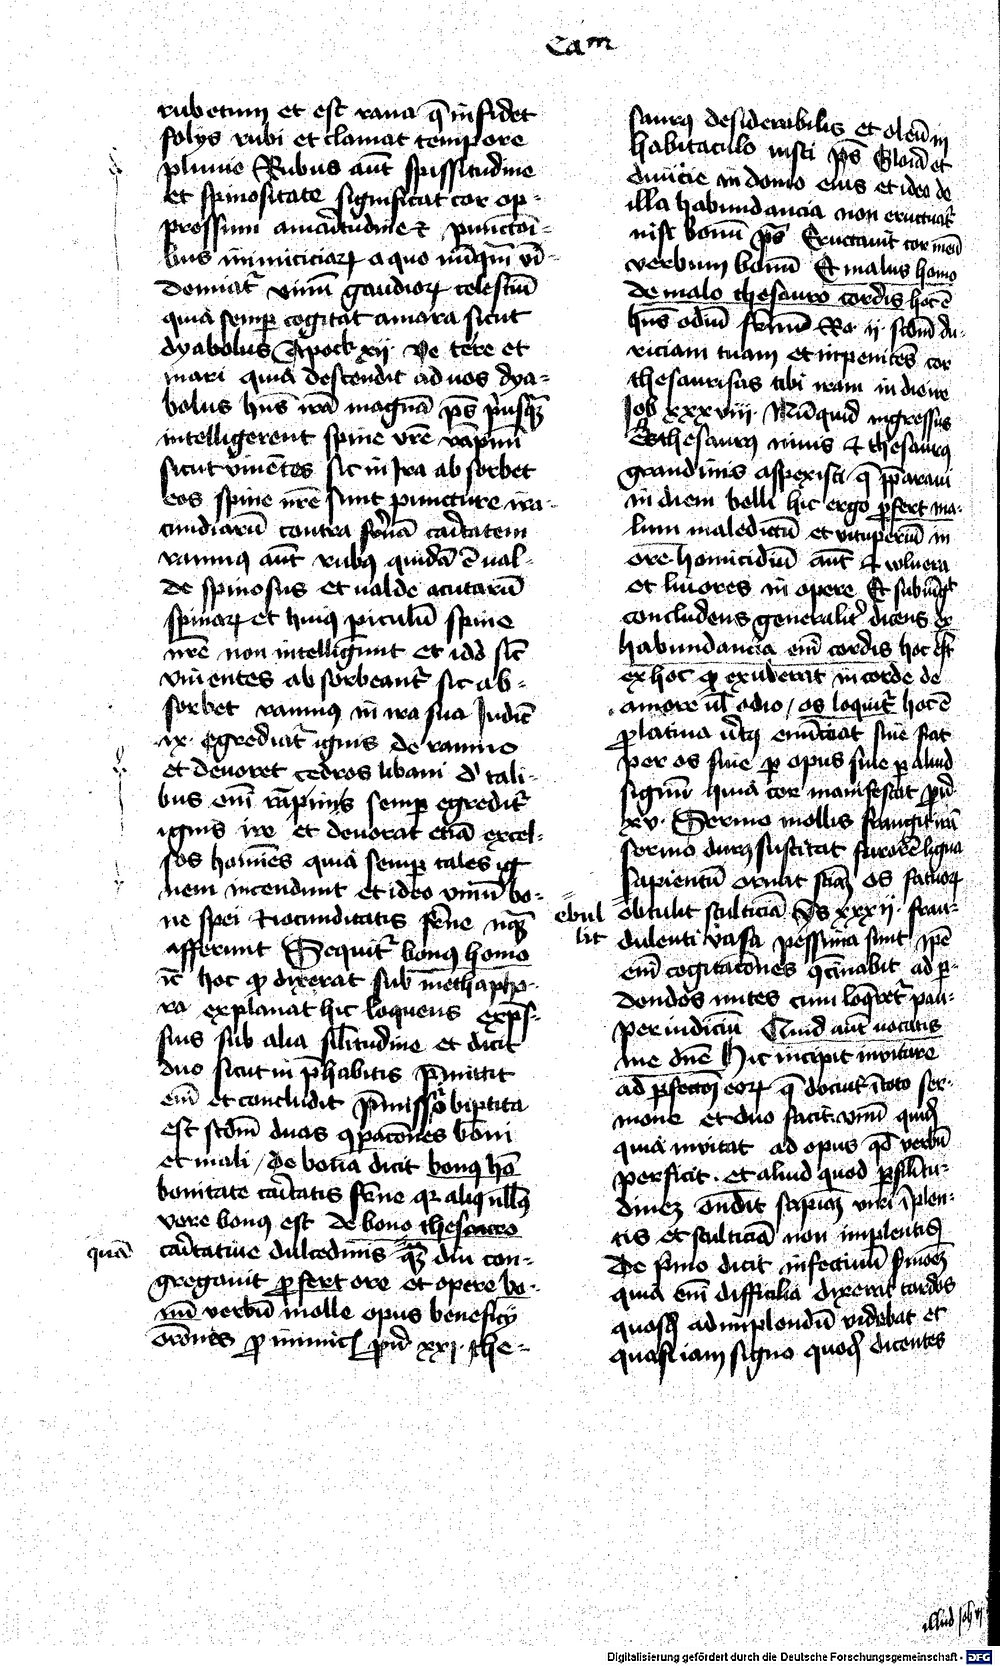 Cam
rubetum et est rana q̄ insidet
folijs rubi et clamat tempore
pluuie Rubus aūt spissitudine
et spinositate significat cor op-
pressum amaritudine et punctōi-
bus inimiciciarꝫ a quo nūq̄m vī-
demiat᷑ vinū gaudiorꝫ celestiū
quia semp cogitat amara sicut
dyabolus Apock xii Ve terre et
mari quia descendit ad uos dya-
bolus hn̄s irā magnā ps̄ p̄usq̄ꝫ
intelligerent spine vr̄e rāpnū
sicut viuētes sic in Ira absorbet
eos spine ur̄e sunt puncture ira-
cundiarū contra fr̄nā caritatem
ramnꝰ aūt rubꝰ quidā ē ual-
de spinosus et ualde acutarū
spinarꝫ et huiꝰ piculū spine
ur̄e non intelligunt et idō sic̄
viuentes absorbeant᷑ sic ab-
sorbet ramnus in ira sua Iudic̄
ix egrediat᷑ ignis de ramno
et deuoret cedros libani d᷑ tali-
bus em̄ rāpinis semp egredit᷑
ignis ire et deuorat etiā excel-
sos homīes quia semp tales ig
nem incendunt et ideo vinū bo-
ne spei et iocunditatis fr̄ne nūq̄ꝫ
afferunt Sequit᷑ bonꝰ homo
ic̄ hoc qꝫ dixerat sub methapho-
ra explanat hic loquens exp̄s-
sius sub alia sil̄itudine et dicit
duo sicut in p̄habitis p̄mittit
em̄ et concludit p̄missō bip̄tita
est scd̄m duas cōparac̄ones boni
et mali / de bonā dicit bonꝰ hō
bonitate caritatis fr̄ne qꝛ aliq nullꝰ
vere bonꝰ est de bono thesauro
quā
caritatiue dulcedinis q̄ꝫ diu con-
gregauit p̄fert ore et opere bo-
nū verbū molle opus beneficij
orōnes p inimicꝭ pu᷑ xxi the-
saurꝰ desiderabilis et oleū in
habitaculo iusti ps̄ Gloria et
diuicie in domo eius et ideo de
illa habundancia non eructuat᷑
nisi bonū ps̄ Eructauit cor meū
verbum bonū Et malus homo
de malo thesauro cordis hoc ē
hn̄s odiū fr̄nū Ro ii scd̄m du-
riciam tuam et inpenitēs cor
thesaurisas tibi iram in die ire
Iob xxxviii Nūquid ingressus
es thesaurꝰ niuis et thesaurꝰ
grandinis aspexisti q̄ p̄paraui
in diem belli hic ergo p̄fert ma-
lum maledictū et vituperiū in
ore homicidiū aūt et vlnera
et liuores in opere Et subiūgit
concludens generalit᷑ dicens ex
habundancia em̄ cordis hoc est
ex hoc qꝫ exuberat in corde de
amore ul̄ odio / os loquit᷑ hoc ē
p̄latiua
per os siue p opus siue p aliud
signū huiꝰ cor manifestat pu᷑
xv Sermo mollis frangit irā
sermo durꝰ suscitat furorē ligua
sapientū ornat sciāꝫ os fatuorꝫ
ebul
lit
obtulit stulticiā Ys xxxii frau-
dulenti vasa pessima sunt ip̄e
em̄ cogitacōnes cōcinabit ad p-
dendos mites cum loq̄ret᷑ pau-
per iudiciū Quid aūt uocatis
me dn̄e Hic incipit inuitare
ad p̄fectōꝫ eorꝫ q̄ docuit ī toto ser-
mone et duo facit vnū quidē
quia inuitat ad opus qd̄ verbū
perficit et aliud quod p silitu-
dinez ondit sapiāꝫ viri īplen-
tis et stulticiā non implentis
De pmo dicit infectiuū sermonē
quia em̄ difficilia dixerat tardos
quosdꝫ ad implendū videbat et
quasi iam signo quodꝫ dicentes
illud Ioh vi
Digitalisierung gefördert durch die Deutsche Forschungsgemeinschaft - DFG